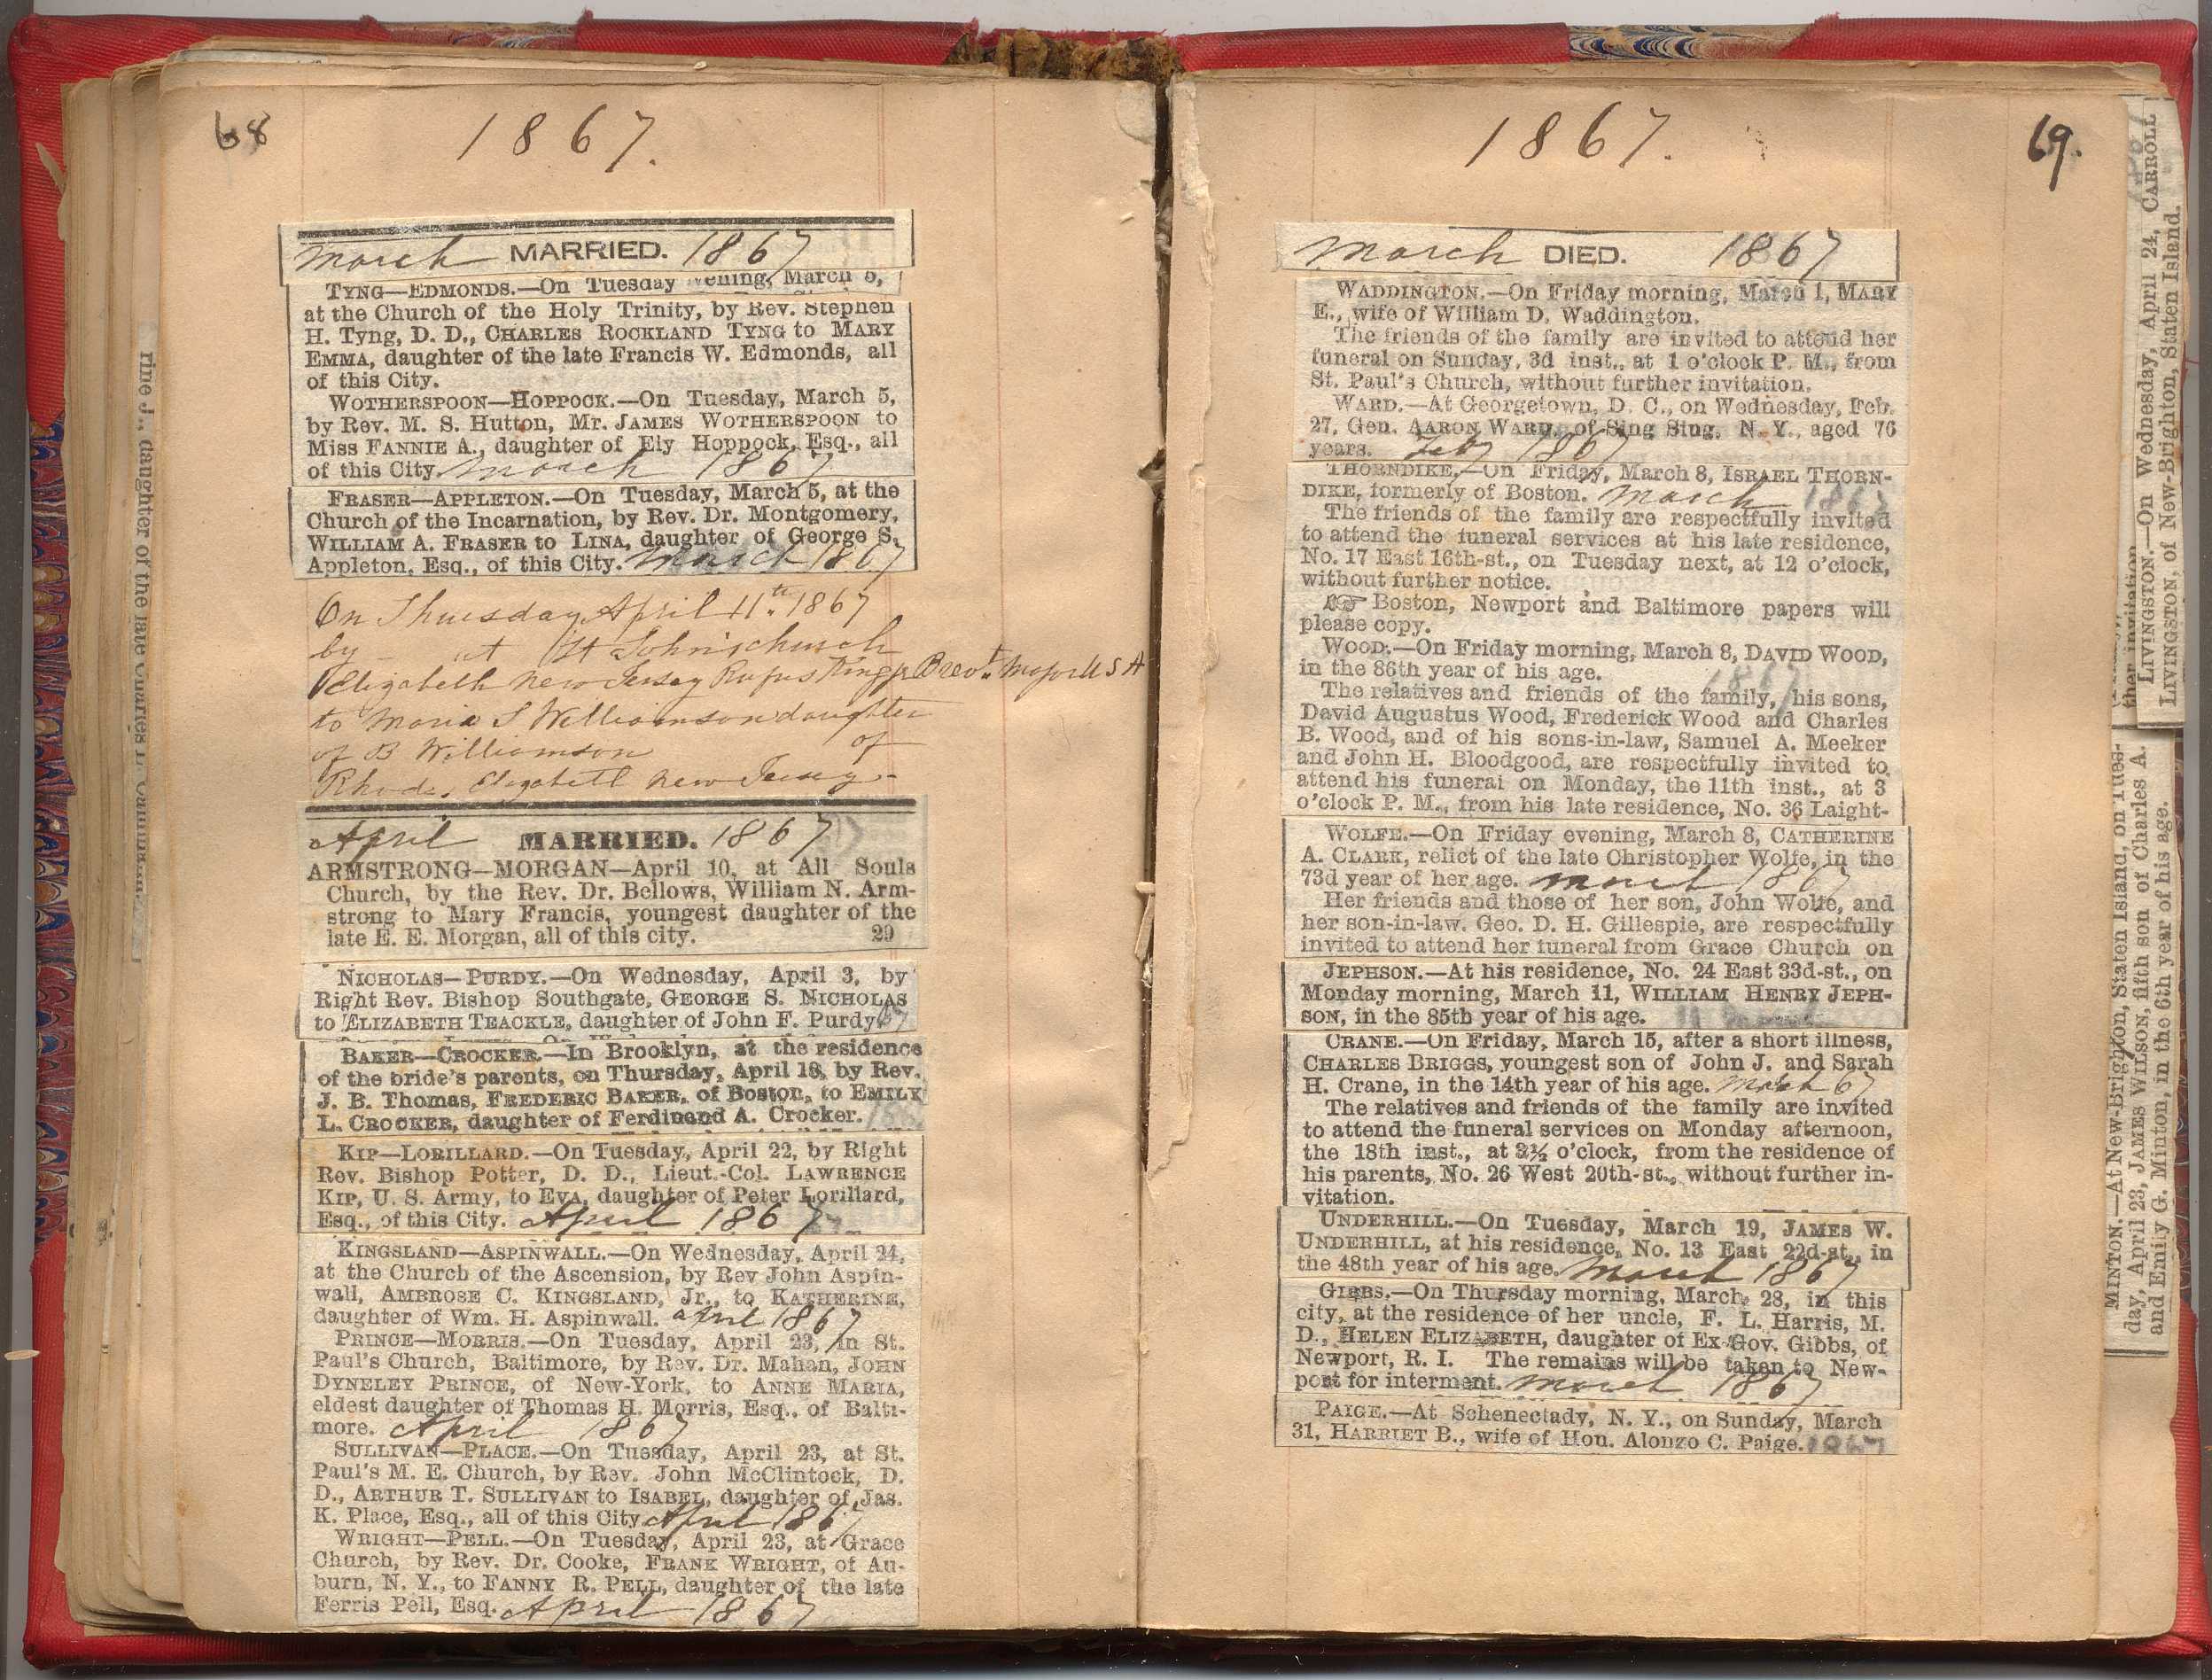 68
1867.
March MARRIED. 1867
TYNG—EDMONDS.—On Tuesday vening, March 5,
at the Church of the Holy Trinity, by Rev. Stephen
H. Tyng, D. D., CHARLES ROCKLAND TYNG to MARY
EMMA, daughter of the late Francis W. Edmonds, all
of this City.
WOTHERSPOON—HOPPOCK.—On Tuesday, March 5,
by Rev. M. S. Hutton, Mr. JAMES WOTHERSPOON to
Miss FANNIE A., daughter of Ely Hoppock, Esq., all
of this City. March 1867
FRASER—APPLETON.—On Tuesday, March 5, at the
Church of the Incarnation, by Rev. Dr. Montgomery,
WILLIAM A. FRASER to LINA, daughter of George S.
Appleton, Esq., of this City. March 1867
On Thursday April 11th 1867
by at St Johns church
Elizabeth New Jersey Rufus King jr Brevt. Major U S A
to Maria S Williamson daughter
of B Williamson of
Elizabeth New Jersey-
April MARRIED. 1867
ARMSTRONG—MORGAN—April 10, at All Souls
Church, by the Rev. Dr. Bellows, William N. Arm-
strong to Mary Francis, youngest daughter of the
late E. E. Morgan, all of this city. 29
NICHOLAS—PURDY.—On Wednesday, April 3, by
Right Rev. Bishop Southgate, GEORGE S. NICHOLAS
to ELIZABETH TEACKLE, daughter of John F. Purdy. 67
BAKER—CROCKER.—In Brooklyn, at the residence
of the bride's parents, on Thursday, April 18, by Rev.
J. B. Thomas, FREDERIC BAKER, of Boston, to EMILY
L. CROCKER, daughter of Ferdinand A. Crocker.
KIP—LORILLARD.—On Tuesday, April 22, by Right
Rev. Bishop Potter, D. D., Lieut.-Col. LAWRENCE
KIP, U. S. Army, to EVA, daughter of Peter Lorillard,
Esq., of this City. April 1867
KINGSLAND—ASPINWALL.—On Wednesday, April 24,
at the Church of the Ascension, by Rev John Aspin-
wall, AMBROSE C. KINGSLAND, Jr., to KATHERINE,
daughter of Wm. H. Aspinwall. april 1867
PRINCE—MORRIS.—On Tuesday, April 23, in St.
Paul's Church, Baltimore, by Rev. Dr. Mahan, JOHN
DYNELEY PRINCE, of New-York, to ANNE MARIA,
eldest daughter of Thomas H. Morris, Esq., of Balti-
more. April 1867
SULLIVAN—PLACE.—On Tuesday, April 23, at St.
Paul's M. E. Church, by Rev. John McClintock, D.
D., ARTHUR T. SULLIVAN to ISABEL, daughter of Jas.
K. Place, Esq., all of this City. April 1867
WRIGHT—PELL.—On Tuesday, April 23, at Grace
Church, by Rev. Dr. Cooke, FRANK WRIGHT, of Au-
burn, N. Y., to FANNY R. PELL, daughter of the late
Ferris Pell, Esq. April 1867
rine J., daughter of the late Charles
1867.
69.
March DIED. 1867
WADDINGTON.—On Friday morning, March 1, MARY
E., wife of William D. Waddington.
The friends of the family are invited to attend her
funeral on Sunday, 3d inst., at 1 o'clock P. M., from
St. Paul's Church, without further invitation.
WARD.—At Georgetown, D. C., on Wednesday, Feb.
27, Gen. AARON WARD, of Sing Sing, N. Y., aged 76
years. Feb 1867
THORNDIKE.—On Friday, March 8, ISRAEL THORN-
DIKE, formerly of Boston. March 1867
The friends of the family are respectfully invited
to attend the funeral services at his late residence,
No. 17 East 16th-st., on Tuesday next, at 12 o'clock,
without further notice.
☞ Boston, Newport and Baltimore papers will
please copy.
WOOD.—On Friday morning, March 8, DAVID WOOD,
in the 86th year of his age. 1867
The relatives and friends of the family, his sons,
David Augustus Wood, Frederick Wood and Charles
B. Wood, and of his sons-in-law, Samuel A. Meeker
and John H. Bloodgood, are respectfully invited to
attend his funeral on Monday, the 11th inst., at 3
o'clock P. M., from his late residence, No. 36 Laight-
WOLFE.—On Friday evening, March 8, CATHERINE
A. CLARK, relict of the late Christopher Wolfe, in the
73d year of her age. March 1867
Her friends and those of her son, John Wolfe, and
her son-in-law, Geo. D. H. Gillespie, are respectfully
invited to attend her funeral from Grace Church on
JEPHSON.—At his residence, No. 24 East 33d-st., on
Monday morning, March 11, WILLIAM HENRY JEPH-
SON, in the 85th year of his age.
CRANE.—On Friday, March 15, after a short illness,
CHARLES BRIGGS, youngest son of John J. and Sarah
H. Crane, in the 14th year of his age. March 67
The relatives and friends of the family are invited
to attend the funeral services on Monday afternoon,
the 18th inst., at 3½ o'clock, from the residence of
his parents, No. 26 West 20th-st., without further in-
vitation.
UNDERHILL.—On Tuesday, March 19, JAMES W.
UNDERHILL, at his residence, No. 13 East 22d-st., in
the 48th year of his age. March 1867
GIBBS.—On Thursday morning, March 28, in this
city, at the residence of her uncle, F. L. Harris, M.
D., HELEN ELIZABETH, daughter of Ex-Gov. Gibbs, of
Newport, R. I. The remains will be taken to New-
port for interment. March 1867
PAIGE.—At Schenectady, N. Y., on Sunday, March
31, HARRIET B., wife of Hon. Alonzo C. Paige. 1867
ther invitation
LIVINGSTON.—On Wednesday, April 24, CARROLL
LIVINGSTON, of New-Brighton, Staten Island.
MINTON.—At New-Brighton, Staten Island, on Tues-
day, April 23, JAMES WILSON, fifth son of Charles A.
and Emily G. Minton, in the 6th year of his age.